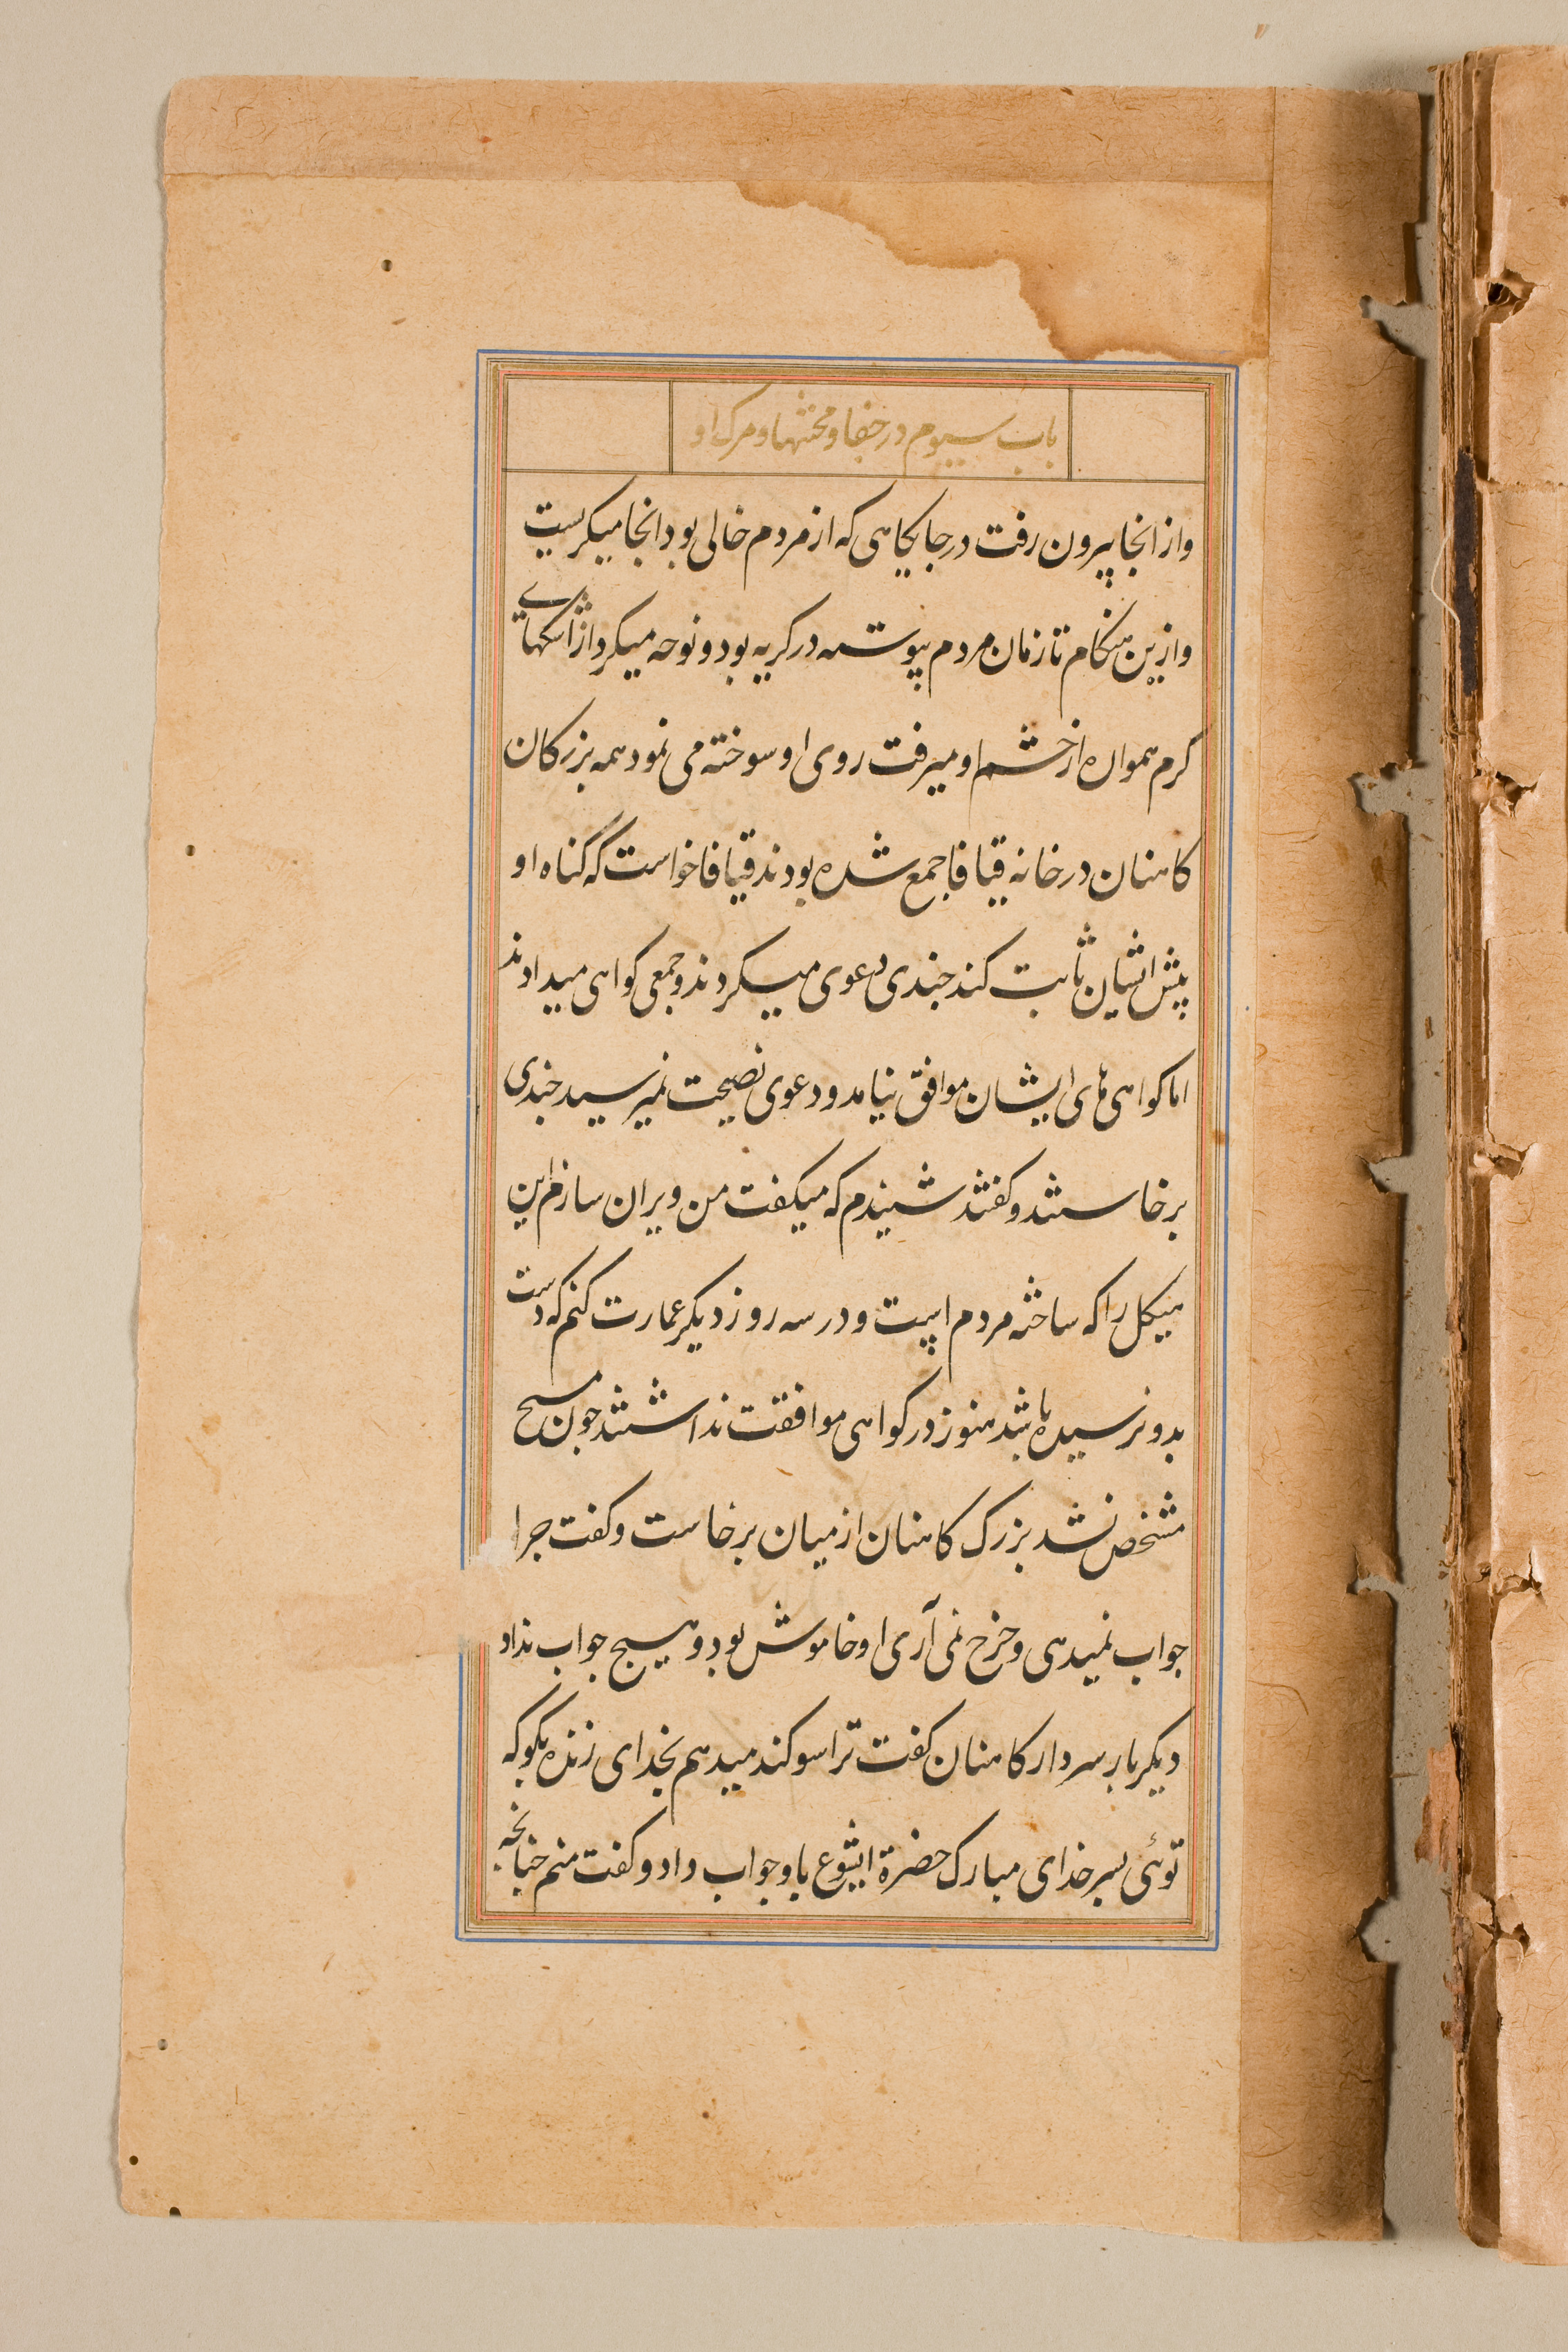 باب سیوم در جفا و محنتها و مرک او
و از انجا بیرون رفت در جایکاهی که از مردم خالی بود انجا میکریست
و ازین هنکام تا زمان مردم پیوسته در کریه بود و نوحه میکرد از اشکهای
کرم همواره از چشم او میرفت روی او سوخته می نمود همه بزرکان
کاهنان در خانه قیافا جمع شده بودند قیافا خواست که گناه او
پیش ایشان ثابت کند چندی دعوی میکردند و جمعی کواهی میدادند
اما کواهی های ایشان موافق نیامد و دعوی نصیحت نمیرسید چندی
برخاستند و کفتند شنیدم که میکفت من ویران سازم این
هیکل را که ساخته مردم است و در سه روز دیکر عمارت کنم که دست
بدو نرسیده باشد هنوز در کواهی موافقت نداشتند جون مسیح
مشخص نشد بزرک کاهنان از میان برخاست و کفت جرا
جواب نمیدهی و حرح نمی آری او خاموش بود و هیج جواب نداد
دیکر بار سردار کاهنان کفت ترا سوکند میدهم بخدای زنده بکو که
توئی بسر خدای مبارک حضرة ایشوع باو جواب داد و کفت منم جنانجه